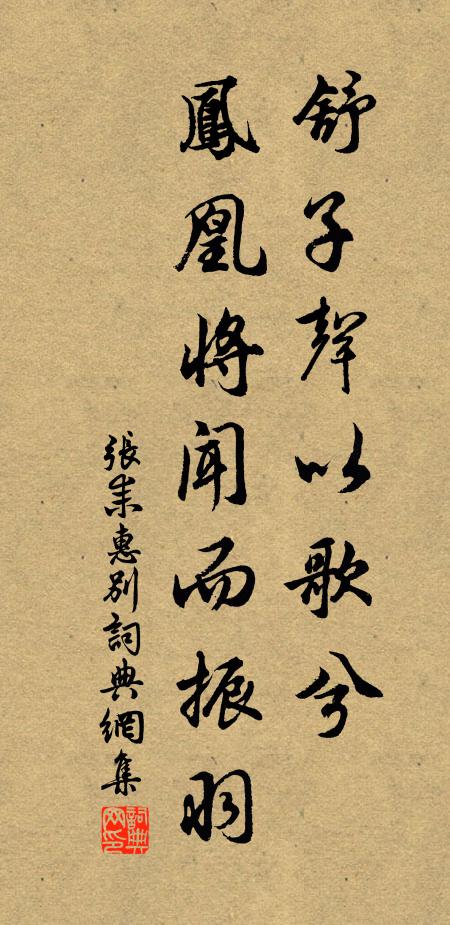 舒子聲以歌兮
鳳凰將聞而振羽
張耒惠別詞典網集
詞典網印